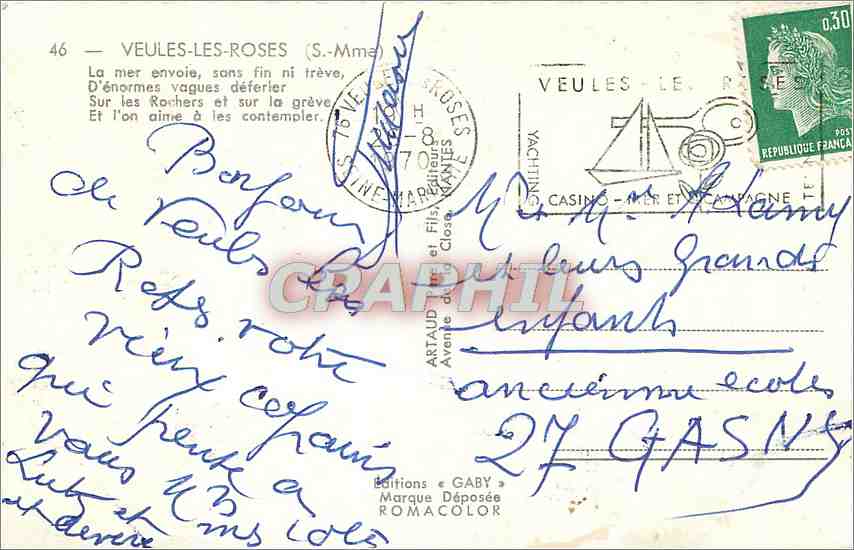 46 — VEULES-LES-ROSES (S.-Mme)
La mer envoie, sans fin ni trêve,
D'énormes vagues déferler
Sur les Rochers et sur la grève,
Et l'on aime à les contempler.
76 VEULES-LES-ROSES
H
-8
70
SEINE-MARITIME
VEULES-LES-ROSES
YACHTING
CASINO-MER ET CAMPAGNE
TENNIS
0,30
POSTES
REPUBLIQUE FRANÇAISE
Bonjour
de Veules les
Roses. votre
vieux copains
qui pense a
vous
et
ARTAUD Père et Fils, Editeurs
Avenue de la Close, NANTES
CPAPHIL
et leurs grands
enfants
ancienne ecoles
27 GASNY
Editions « GABY »
Marque Déposée
ROMACOLOR